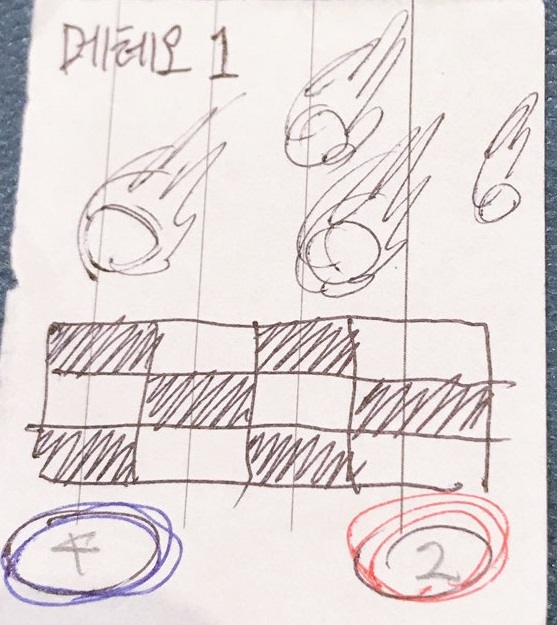 메테오 1
4
2